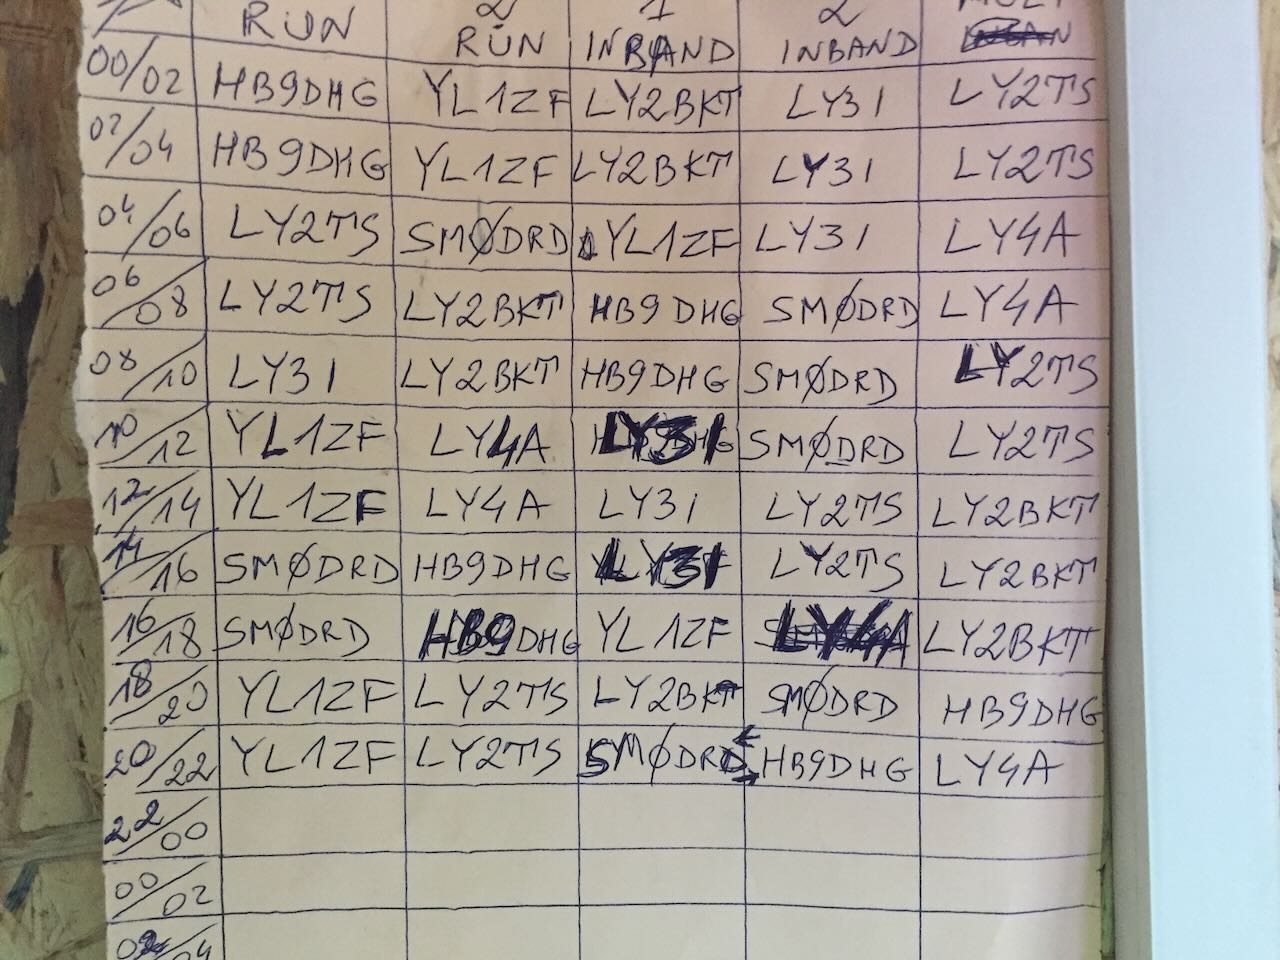 RUN 2 RUN 1 INBAND 2 INBAND MULT
00/02 HB9DHG YL1ZF LY2BKT LY3I LY2TS
02/04 HB9DHG YL1ZF LY2BKT LY3I LY2TS
04/06 LY2TS SMØDRD YL1ZF LY3I LY4A
06/08 LY2TS LY2BKT HB9DHG SMØDRD LY4A
08/10 LY3I LY2BKT HB9DHG SMØDRD LY2TS
10/12 YL1ZF LY4A LY3I SMØDRD LY2TS
12/14 YL1ZF LY4A LY3I LY2TS LY2BKT
14/16 SMØDRD HB9DHG LY3I LY2TS LY2BKT
16/18 SMØDRD HB9DHG YL1ZF LY4A LY2BKT
18/20 YL1ZF LY2TS LY2BKT SMØDRD HB9DHG
20/22 YL1ZF LY2TS SMØDRD HB9DHG LY4A
22/00
00/02
02/04